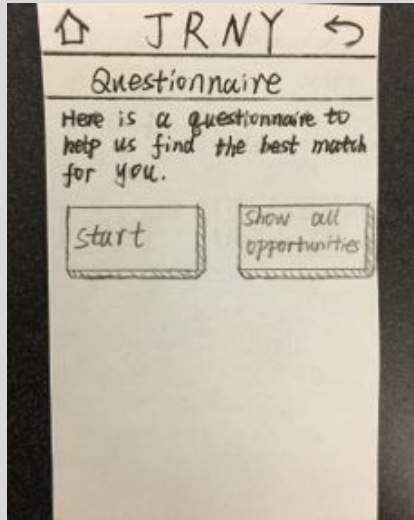 JRNY
Questionnaire
Here is a questionnaire to
help us find the best match
for you.
start
show all
opportunities